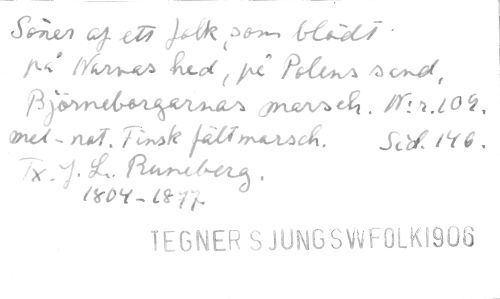 Söner af ett folk, som blödt
på Narvas hed, på Polens sand,
Björneborgarnas marsch. N:r. 109.
mel-not. Finsk fältmarsch. Sid. 146.
Tx. J. L. Runeberg.
1804-1877
TEGNER SJUNG SWFOLK1906